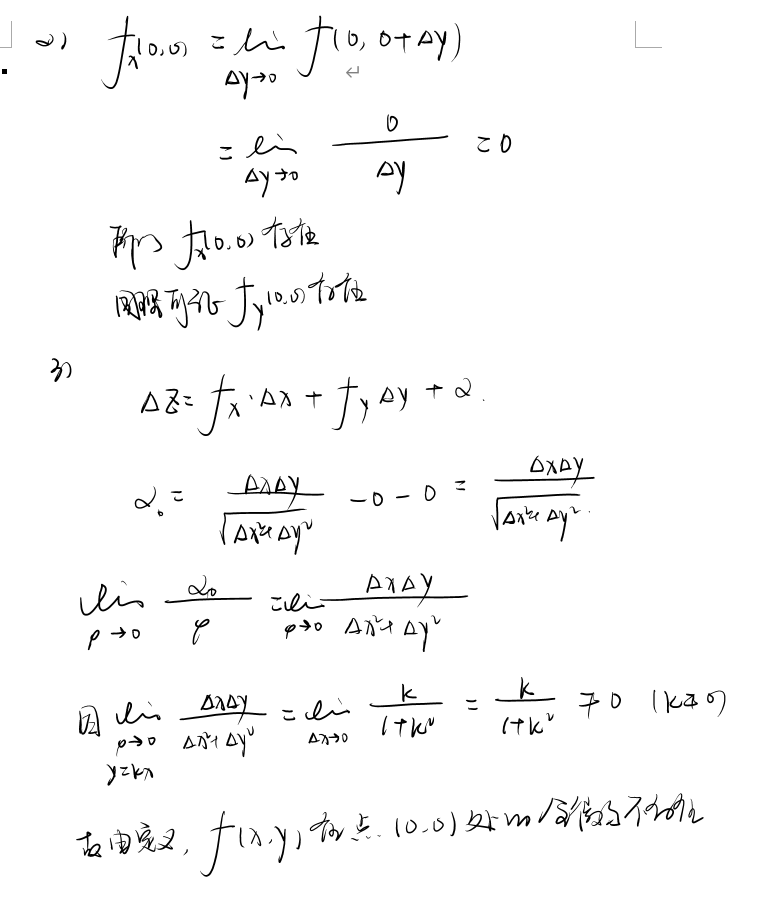 2) f_x(0,0) = lim_{Δy→0} f(0, 0+Δy)
= lim_{Δy→0} 0/Δy = 0
所以 f_x(0,0) 存在
同理可证 f_y(0,0) 存在
3)
Δz = f_x·Δx + f_y Δy + α.
α₀ = ΔxΔy/√(Δx²+Δy²) - 0 - 0 = ΔxΔy/√(Δx²+Δy²)
lim_{ρ→0} α₀/ρ = lim_{ρ→0} ΔxΔy/(Δx²+Δy²)
因 lim_{ρ→0, y=kx} ΔxΔy/(Δx²+Δy²) = lim_{Δx→0} k/(1+k²) = k/(1+k²) ≠ 0 (k≠0)
故由定义, f(x,y) 在点 (0,0) 处的全微分不存在